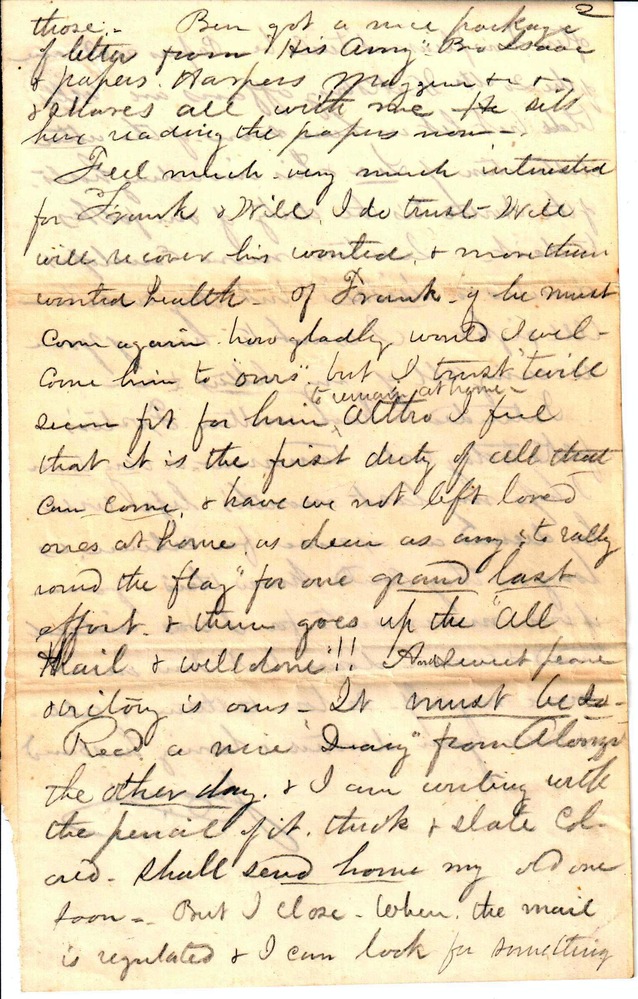 2
those. - Ben got a nice package
of letters from "His Amy" Bro Isaac
& papers. Harpers Magzine & c -
& shares all with me He sits
here reading the papers now -.
Feel much - very much interested
for Frank & Will. I do trust Will
will recover his wonted, & more than
wonted health - Of Frank - if he must
come again how gladly would I wel-
come him to "ours" but I trust twill
seem fit for him to remain at home - Altho I feel
that it is the first duty of all that
can come, & have we not left loved
ones at home, as dear as any "to rally
round the flag" for one grand last
effort. & then goes up the "All
Hail & well done"!! And sweet peace
victory is ours - It must be so -
Recd a nice "Diary" from Alonzo
the other day. & I am writing with
the pencil of it. thick & slate col-
ored - shall send home my old one
soon -. But I close - When, the mail
is regulated & I can look for something